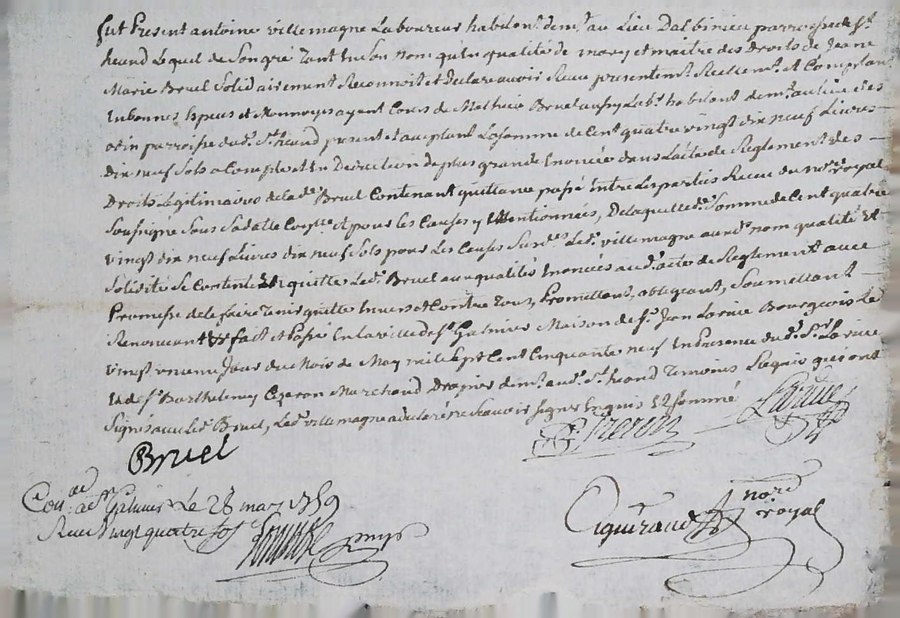 fut Present antoine villemagne Laboureur habitant demt au Lieu Dalbinieu parroisse de st
heand Lequel de Son gré Tant En Son Nom qu'En qualité de mary et maitre des Droits de Jeane
Marie Bruel Solidairement Reconnoit et declare avoir Receu presentemt Reellemt et Comptant
En bonnes Especes et Monnoye ayant Cours de Mathieu Bruel aussy Labr habitant demt au lieu des
parroisse dud. St heand present et acceptant La Somme de Cent quatre vingt dix neuf Livres
dix neuf Sols a Compte et En Deduction de plus grande Enoncée dans L'acte de Reglement des
Droits Legitimaires de lade Bruel Contenant quittance passé Entre Les parties Receu du nore royal
Soussigné Sous Sa datte Coplle et pour les Causes y Mentionnées, De laquelle d. Somme de Cent quatre
vingt dix neuf Livres dix neuf Sols pour Les Causes Susdes Led. villemagne auxd. nom qualité Et
Solidité Se Contente Et quitte Led. Bruel aux qualités Enoncées aud. acte de Reglement avec
Promesse de le faire Tenir quitte Envers et Contre Tous, Promettant, obligeant, Soumettant
Renonceant &c fait et Passé En la ville de st Galmier Maison de Sr. Jean Larue Bourgeois Le
vingt unieme Jour du Mois de May mil Sept Cent Cinquante neuf En Presence dud. Sr. Larue
Et de Sr Barthelemy Marchand Drapier demt aud. St heand Temoins Requis qui ont
Signé avec led. Bruel, Led. villemagne a declaré ne Scavoir Signer Enquis Et Sommé
Larue
Bruel
Con. ad Galmier Le 28 may 1759
Receu Vingt quatre Sols
Aguiraud nore royal